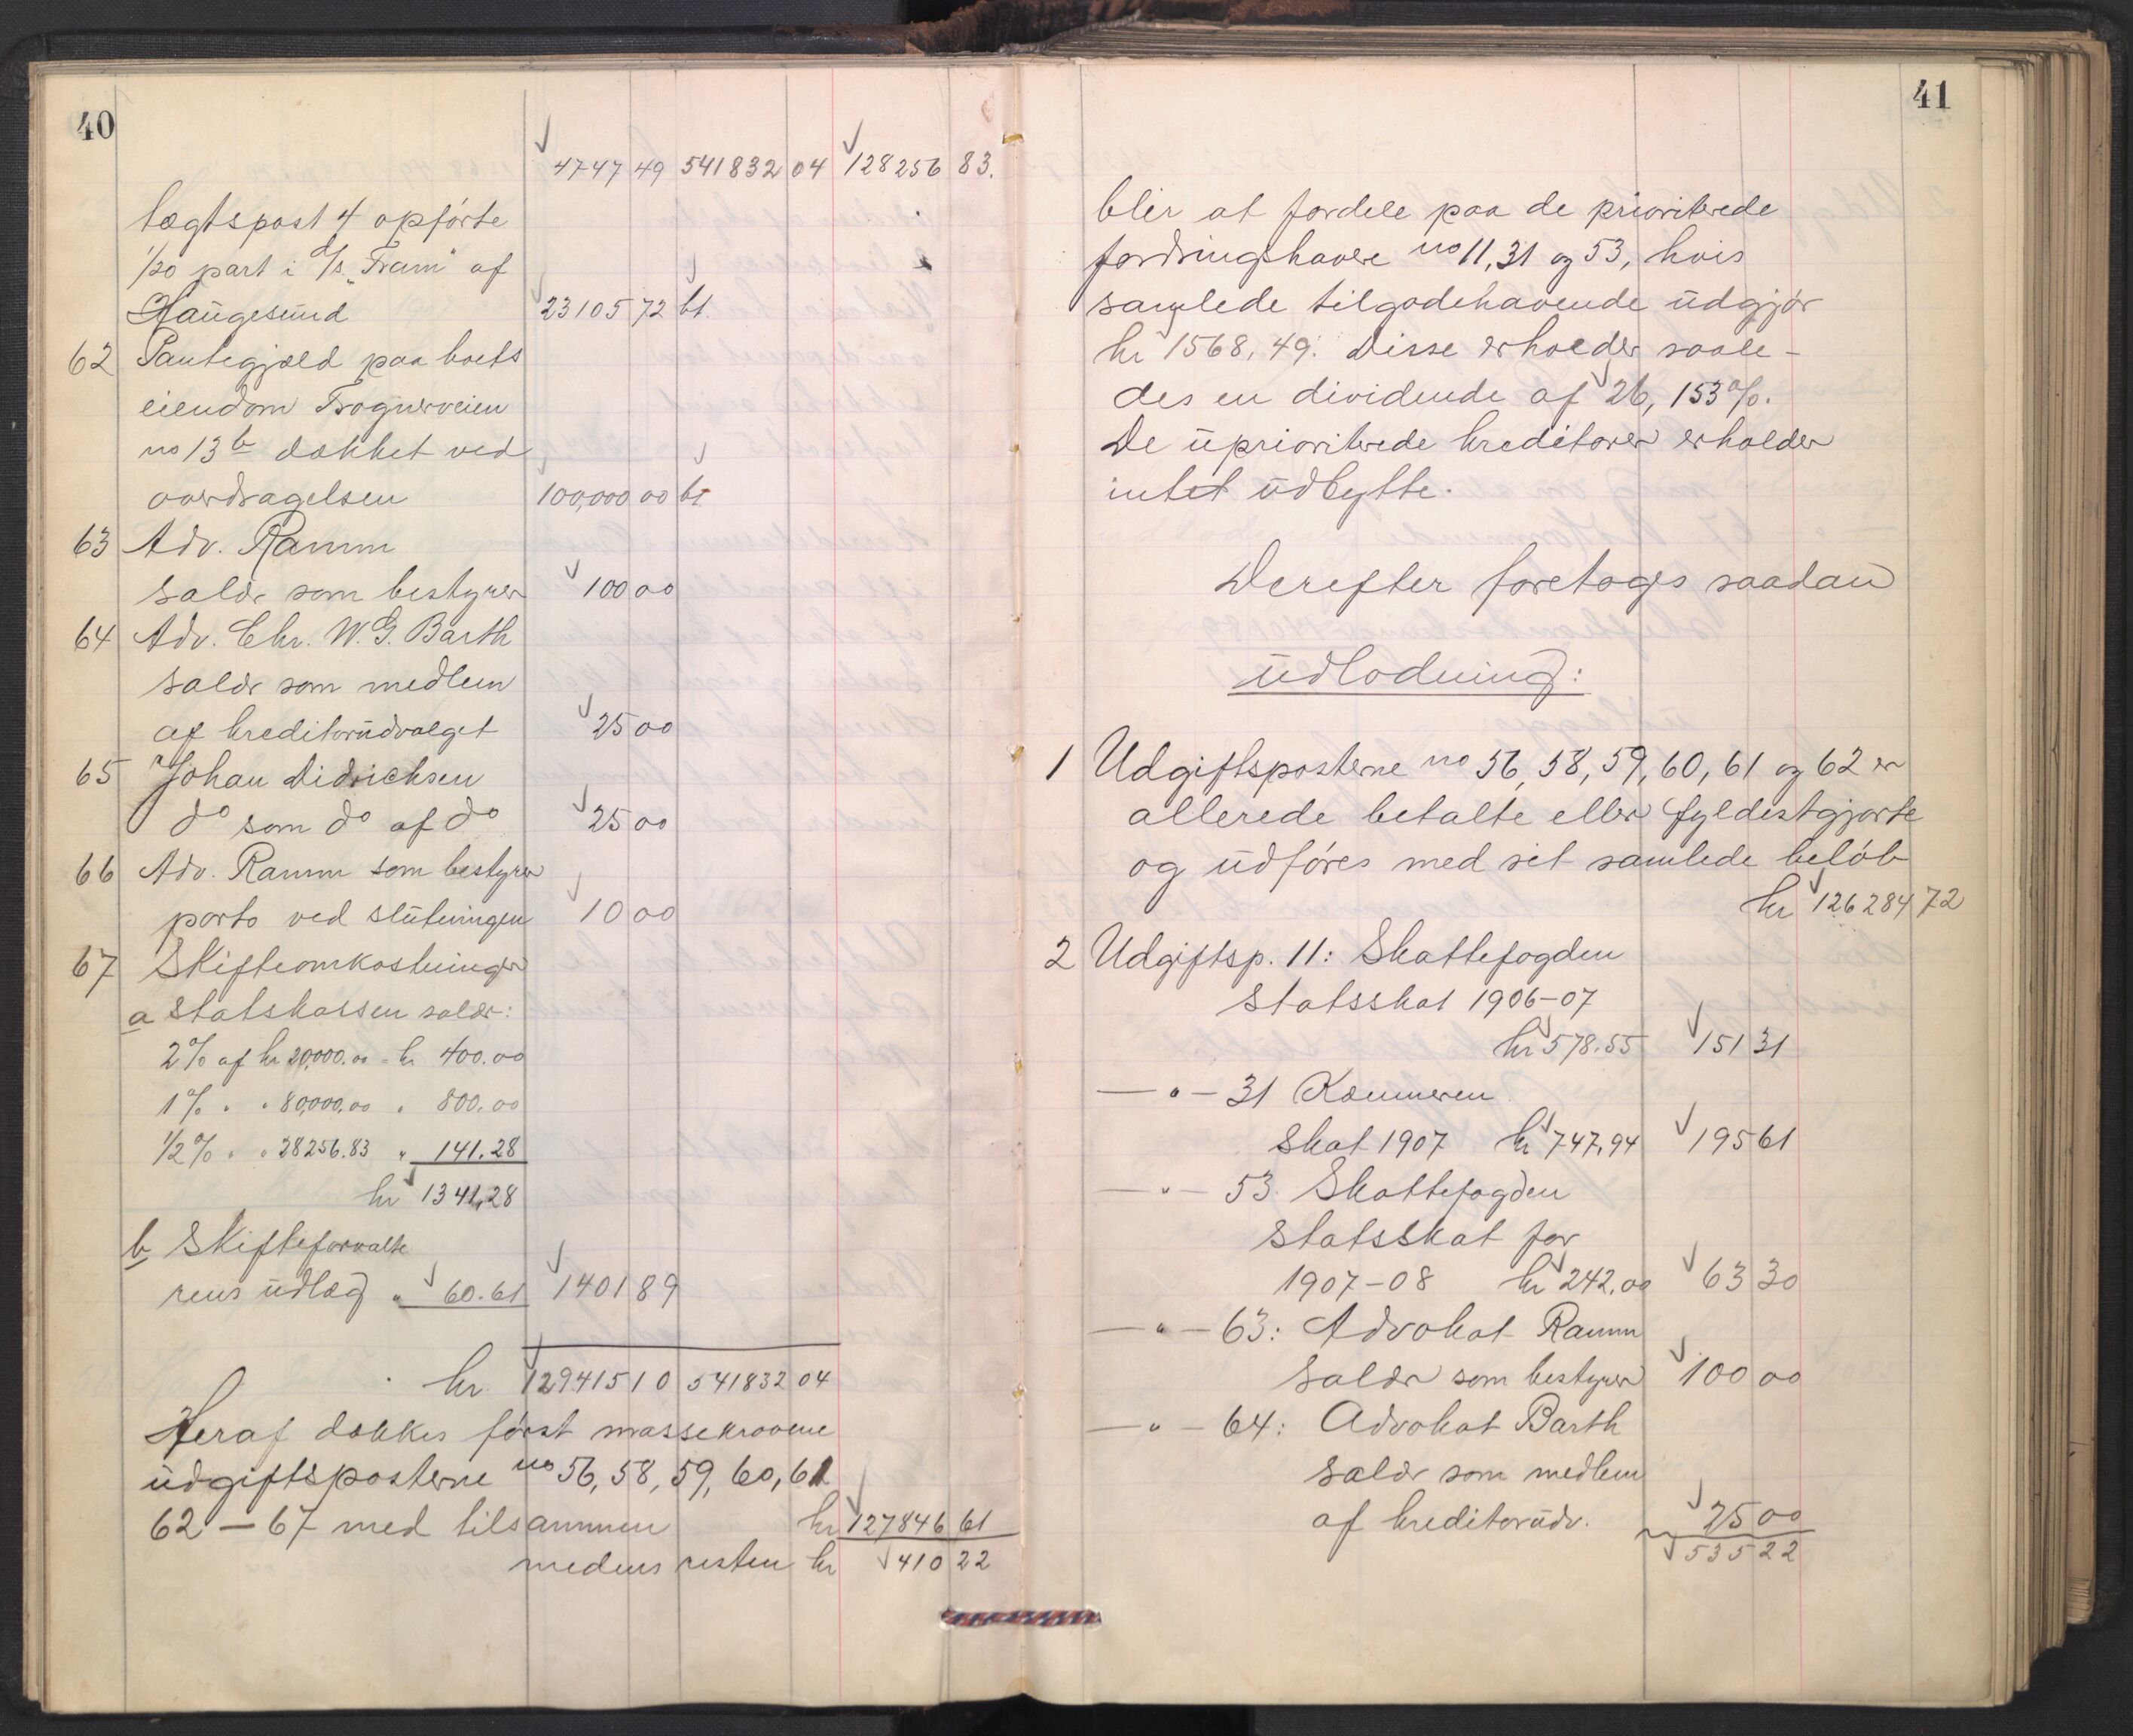 40
4747 49 541832 04 128256 83.
tægtspost 4 opførte
1/20 part i d/s „Fram" af
Haugesund 23105 72 bt.
62 Pantegjæld paa boets
eiendom Frognerveien
no 13 b dækket ved
overdragelsen 100,000 00 bt
63 Adv. Ramm
salær som bestyrer 100 00
64 Adv. Chr. W. G. Barth
salær som medlem
af kreditorudvalget 25 00
65 Johan Didrichsen
do som do af do 25 00
66 Adv. Ramm som bestyrer
porto ved slutningen 10 00
67 Skifteomkostninger
a Statskassen salær:
2% af kr 20,000.00 = kr 400.00
1% " " 80,000.00 " 800.00
1/2% " " 28256.83 " 141.28
kr 1341,28
b Skifteforvalte
rens udlæg " 60.61 1401 89
kr. 129415 10 541832 04
Heraf dækkes først massekravene
udgiftsposterne no 56, 58, 59, 60, 61
62 — 67 med tilsammen kr 127846 61
medens resten kr 410 22
41
blir at fordele paa de prioriterede
fordringshavere no 11, 31 og 53, hvis
samlede tilgodehavende udgjør
kr 1568,49. Disse erholder saale-
des en dividende af 26,153%.
De uprioriterede kreditorer erholder
intet udbytte.
Derefter foretoges saadan
udlodning:
1 Udgiftsposterne no 56, 58, 59, 60, 61 og 62 er
allerede betalte eller fyldestgjorte
og udføres med sit samlede beløb
kr 126284 72
2 Udgiftsp. 11: Skattefogden
Statsskat 1906-07
kr 578.55 151 31
— " — 31 Kæmneren
Skat 1907 kr 747,94 195 61
— " — 53. Skattefogden
Statsskat for
1907-08 kr 242,00 63 30
— " — 63: Advokat Ramm
salær som bestyrer 100 00
— " — 64: Advokat Barth
salær som medlem
af kreditorudv. 25 00
535 22